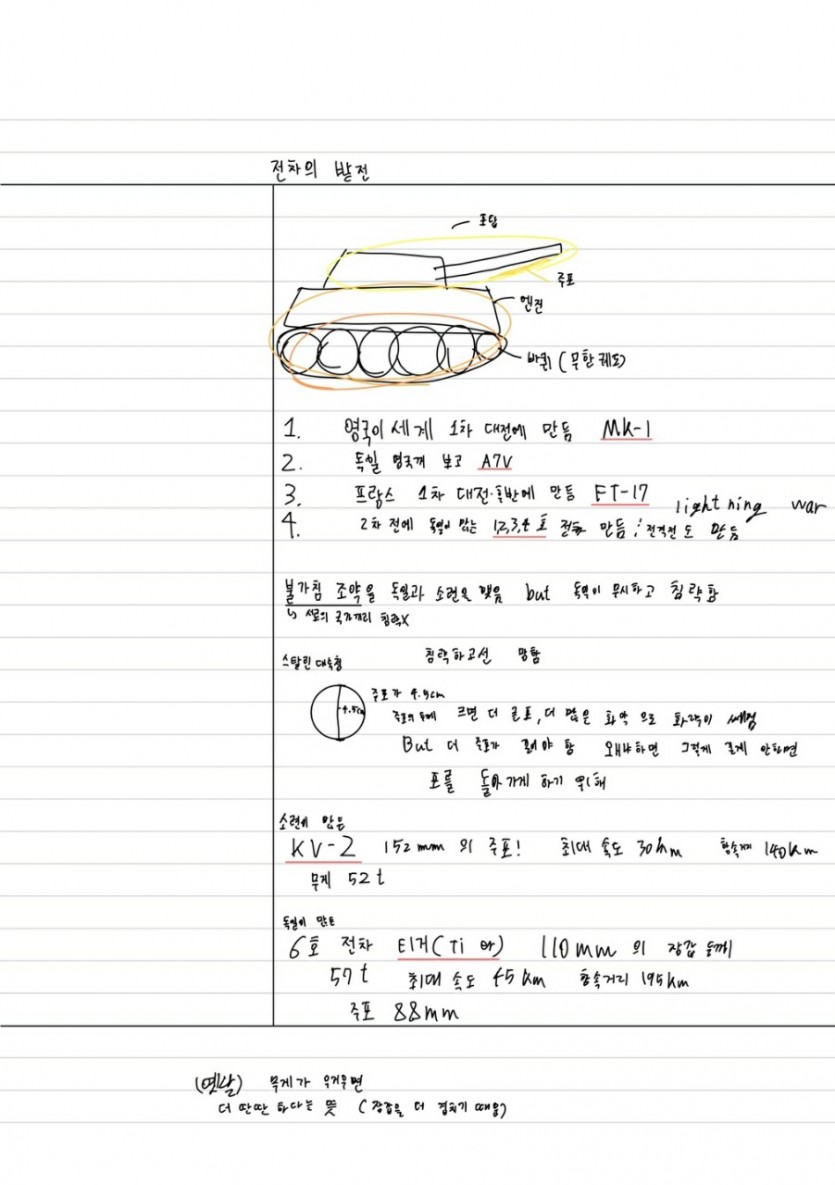 전차의 발전
포탑
주포
엔진
바퀴 (무한궤도)
1. 영국이 세계 1차 대전에 만듬 MK-1
2. 독일 영국꺼 보고 A7V
3. 프랑스 1차 대전 후반에 만듬 FT-17
lightning war
4. 2차 전에 독일이 만든 1,2,3,4 호 만듬 전격전도 만듬
불가침 조약을 독일과 소련은 맺음 but 독일이 무시하고 침략함
↳ 서로의 국가끼리 침략X
침략하고선 망함
스탈린
주포가 4.5cm
4.5cm
크면 더 큰 포, 더 많은 화약으로 화력이 쎄짐
But 더 주포가 길어야 함 왜냐하면 그렇게 길게 안하면
포를 돌아가게 하기 위해
소련이 만든
KV-2 152mm 의 주포! 최대 속도 30km 항속거리 140km
무게 52t
독일이 만든
6호 전차 티거(Ti 어) 110mm 의 장갑 두께
57t 최대 속도 45km 항속거리 195km
주포 88mm
(옛날) 무게가 무거우면
더 딴딴하다는 뜻 (장갑을 더 겹치기 때문)